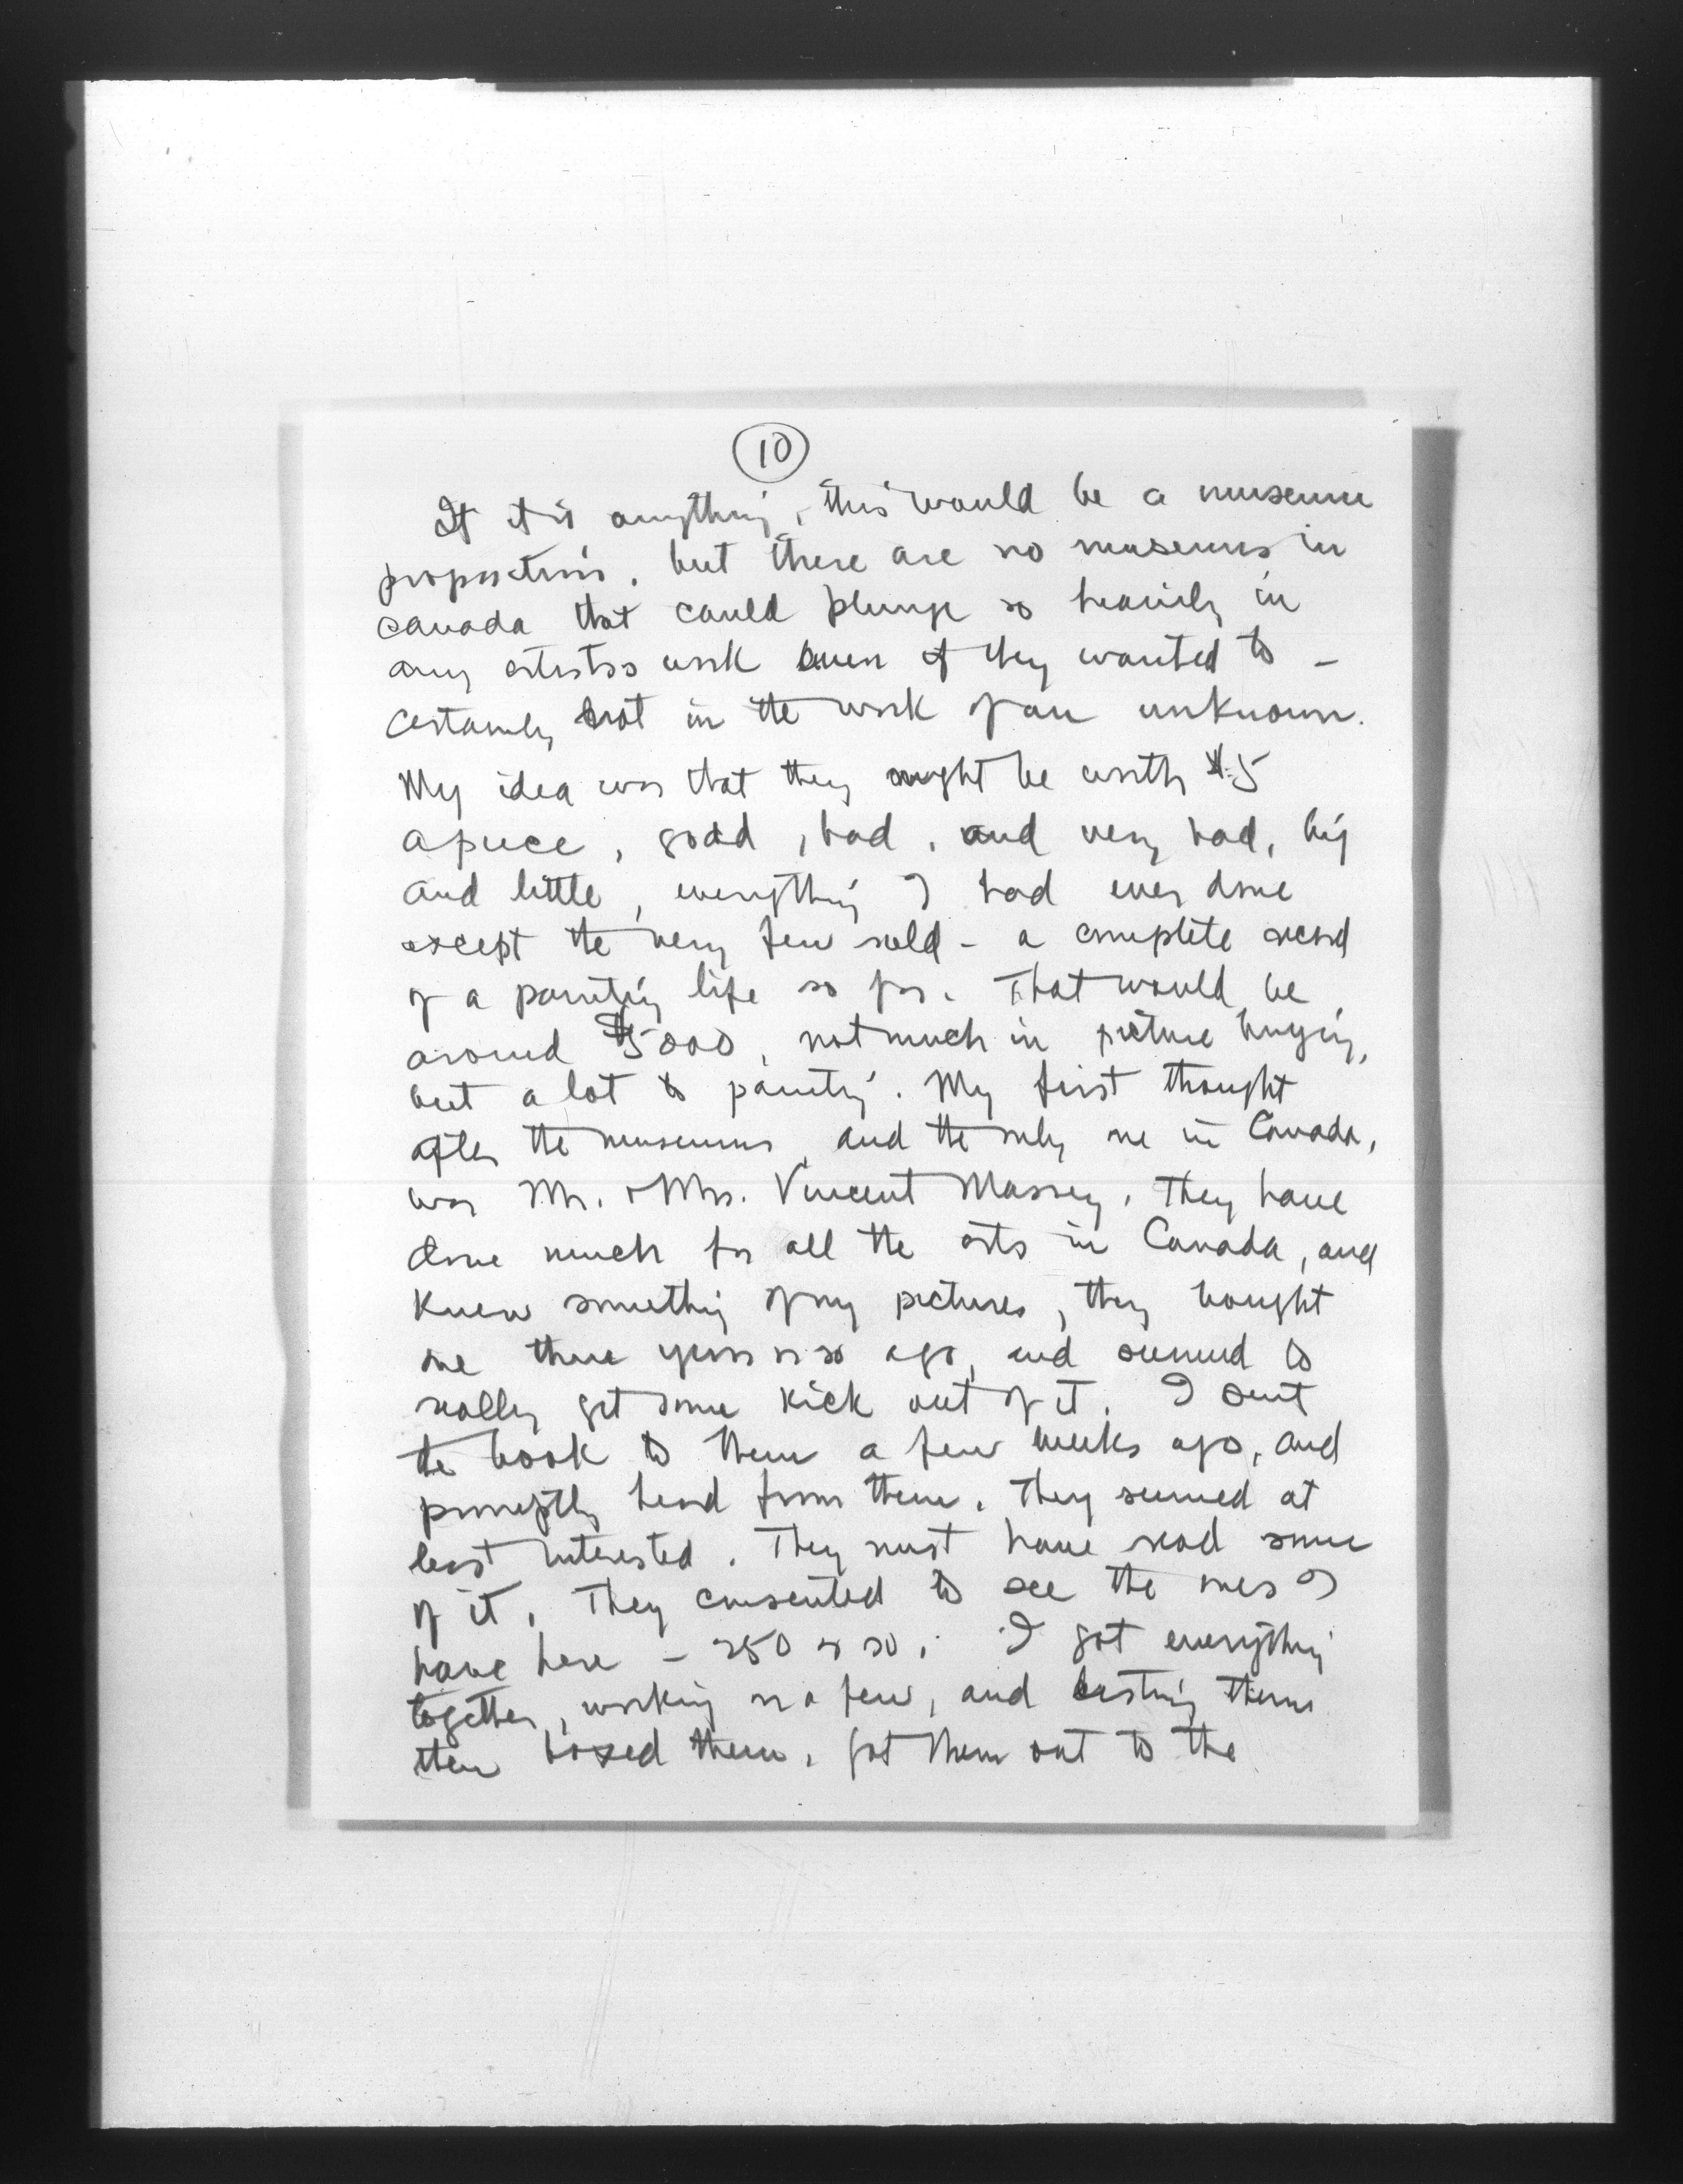 10
If it is anything, this would be a museum
proposition, but there are no museums in
Canada that could plunge so heavily in
any artists work even if they wanted to -
certainly not in the work of an unknown.
My idea was that they might be worth $5
apiece, good, bad, and very bad, big
and little, everything I had ever done
except the very few sold - a complete record
of a painting life so far. That would be
around $5000, not much in picture buying,
but a lot to painting. My first thought
after the museums, and the only one in Canada,
was Mr. & Mrs. Vincent Massey. They have
done much for all the arts in Canada, and
knew something of my pictures, they bought
one three years or so ago, and seemed to
really get some kick out of it. I sent
the book to them a few weeks ago, and
promptly heard from them. They seemed at
least interested. They must have read some
of it. They consented to see the ones I
have here - 250 or so. I got everything
together, working on a few, and listing them
then boxed them. Got them out to the